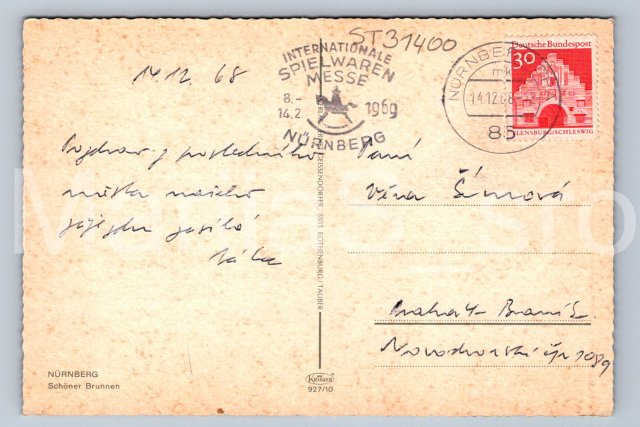 ST31400
INTERNATIONALE
SPIELWAREN
MESSE
8.-
14.2.
1969
NÜRNBERG
NÜRNBERG
mk
14.12.68
85
Deutsche Bundespost
30
FLENSBURG/SCHLESWIG
14.12.68
Pozdrav z posledního
místa našeho
zájezdu zasílá
Paní
Věra Šímová
Praha 4 - Braník
Novodvorská čp 1089
GEISENDÖRFER 8803 ROTHENBURG/TAUBER
NÜRNBERG
Schöner Brunnen
Krüger
927/10